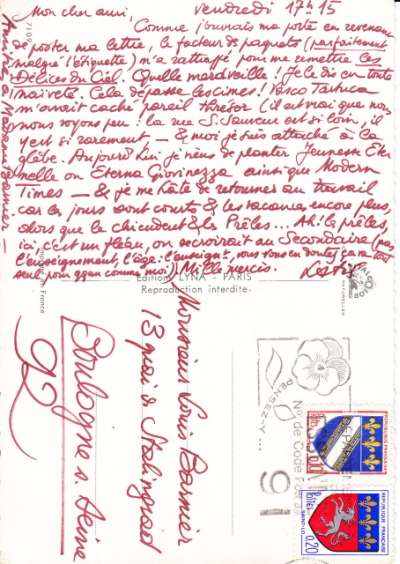 vendredi 17h15
Mon cher ami,
Comme j'ouvrais ma porte en revenant
de poster ma lettre, le facteur de paquets (parfaitement
malgré l'étiquette) m'a rattrapé pour me remettre les
Délices du Ciel. Quelle merveille ! Je le dis en toute
naïveté. Cela dépasse les cimes ! Vasco
m'avait caché pareil trésor (il est moi que nous
nous voyons peu ! la rue S. Sauveur est si loin, il
y est si rarement — & moi je suis attaché à la
glèbe. Aujourd'hui je viens de planter Jeunesse Éter
nelle ou Eterna Giovinezza ainsi que Modern
Times — & je me hâte de retourner au travail
car les jours sont courts & les vacances encore plus,
alors que le chiendent & les Prêles... Ah ! la prêles,
ici, c'est un fléau, on se croirait au Secondaire (pas
l'enseignement, l'âge : l'enseignt, vous vous en doutez, ça ne tout
seul pour qqun comme moi) Mille mercis.
Amitiés à Madame Barnier —
Editions LYNA - PARIS
Reproduction interdite
France
Monsieur Louis Barnier
13 quai de Stalingrad
Boulogne s. Seine
92
PENSEZ-Y...
No de Code Postal
91
REPUBLIQUE FRANÇAISE
0,20
SAINT-LO
REPUBLIQUE FRANÇAISE